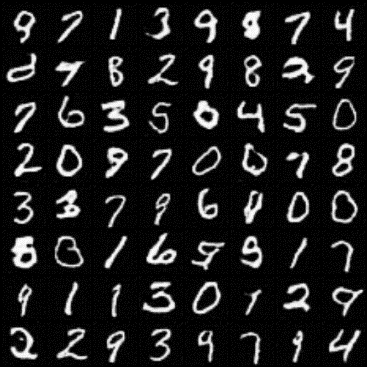 9 7 1 3 9 8 7 4
7 8 2 9 8 2 9
7 6 3 5 0 4 5 0
2 0 9 7 0 0 7 8
3 3 7 9 6 0 0
8 0 1 6 9 1 7
9 1 1 3 0 1 2 9
2 2 9 3 9 7 9 4